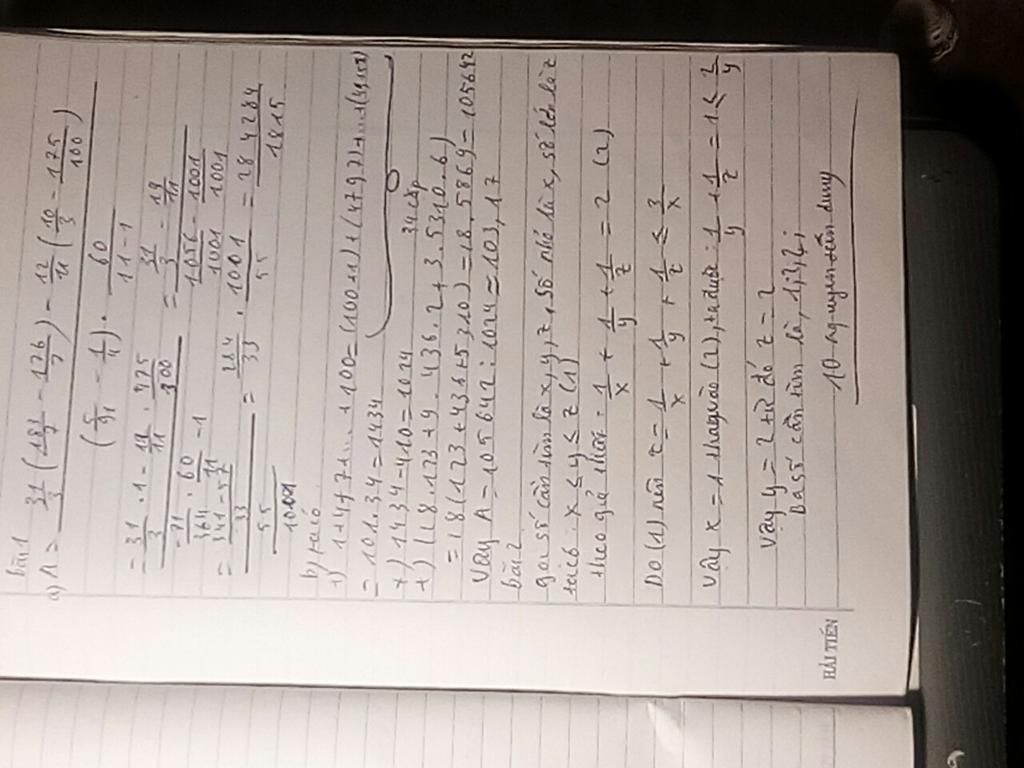 bài 1
a) A = 31/3 (183/7 - 176/7) - 12/11 (10/3 - 175/100)
(5/91 - 1/4) . 60/11 - 1
= 31/3 . 1 - 19/11 . 475/300 = 31/3 - 19/11
-71/364 . 60/11 - 1 1056/1001 - 1001/1001
= 341-57/33 = 284/33 . 1001/55 = 284284/1815
55/1001
b) ta có
+) 1+4+7+....+100=(100+1)+(4+97)+...+(49+52)
34 cặp
= 101.34 = 1434
+) 1434-410=1024
+) (18.123+9.436.2+3.5310.6)
= 18(123+436+5310)=18.5869=105642
Vậy A=105642:1024≈103,17
bài 2
gọi số cần tìm là x,y,z, số nhỏ là x, số lớn là z
ta có: x ≤ y ≤ z (1)
theo giả thiết: 1/x + 1/y + 1/z = 2 (2)
Do (1) nên z = 1/x + 1/y + 1/z ≤ 3/x
Vậy x = 1 thay vào (2), ta được: 1/y + 1/z = 1 ≤ 2/y
Vậy y = 2 từ đó z = 2
Ba số cần tìm là, 1;2;2;
10-nguyễn tiến dung
HẢI TIẾN